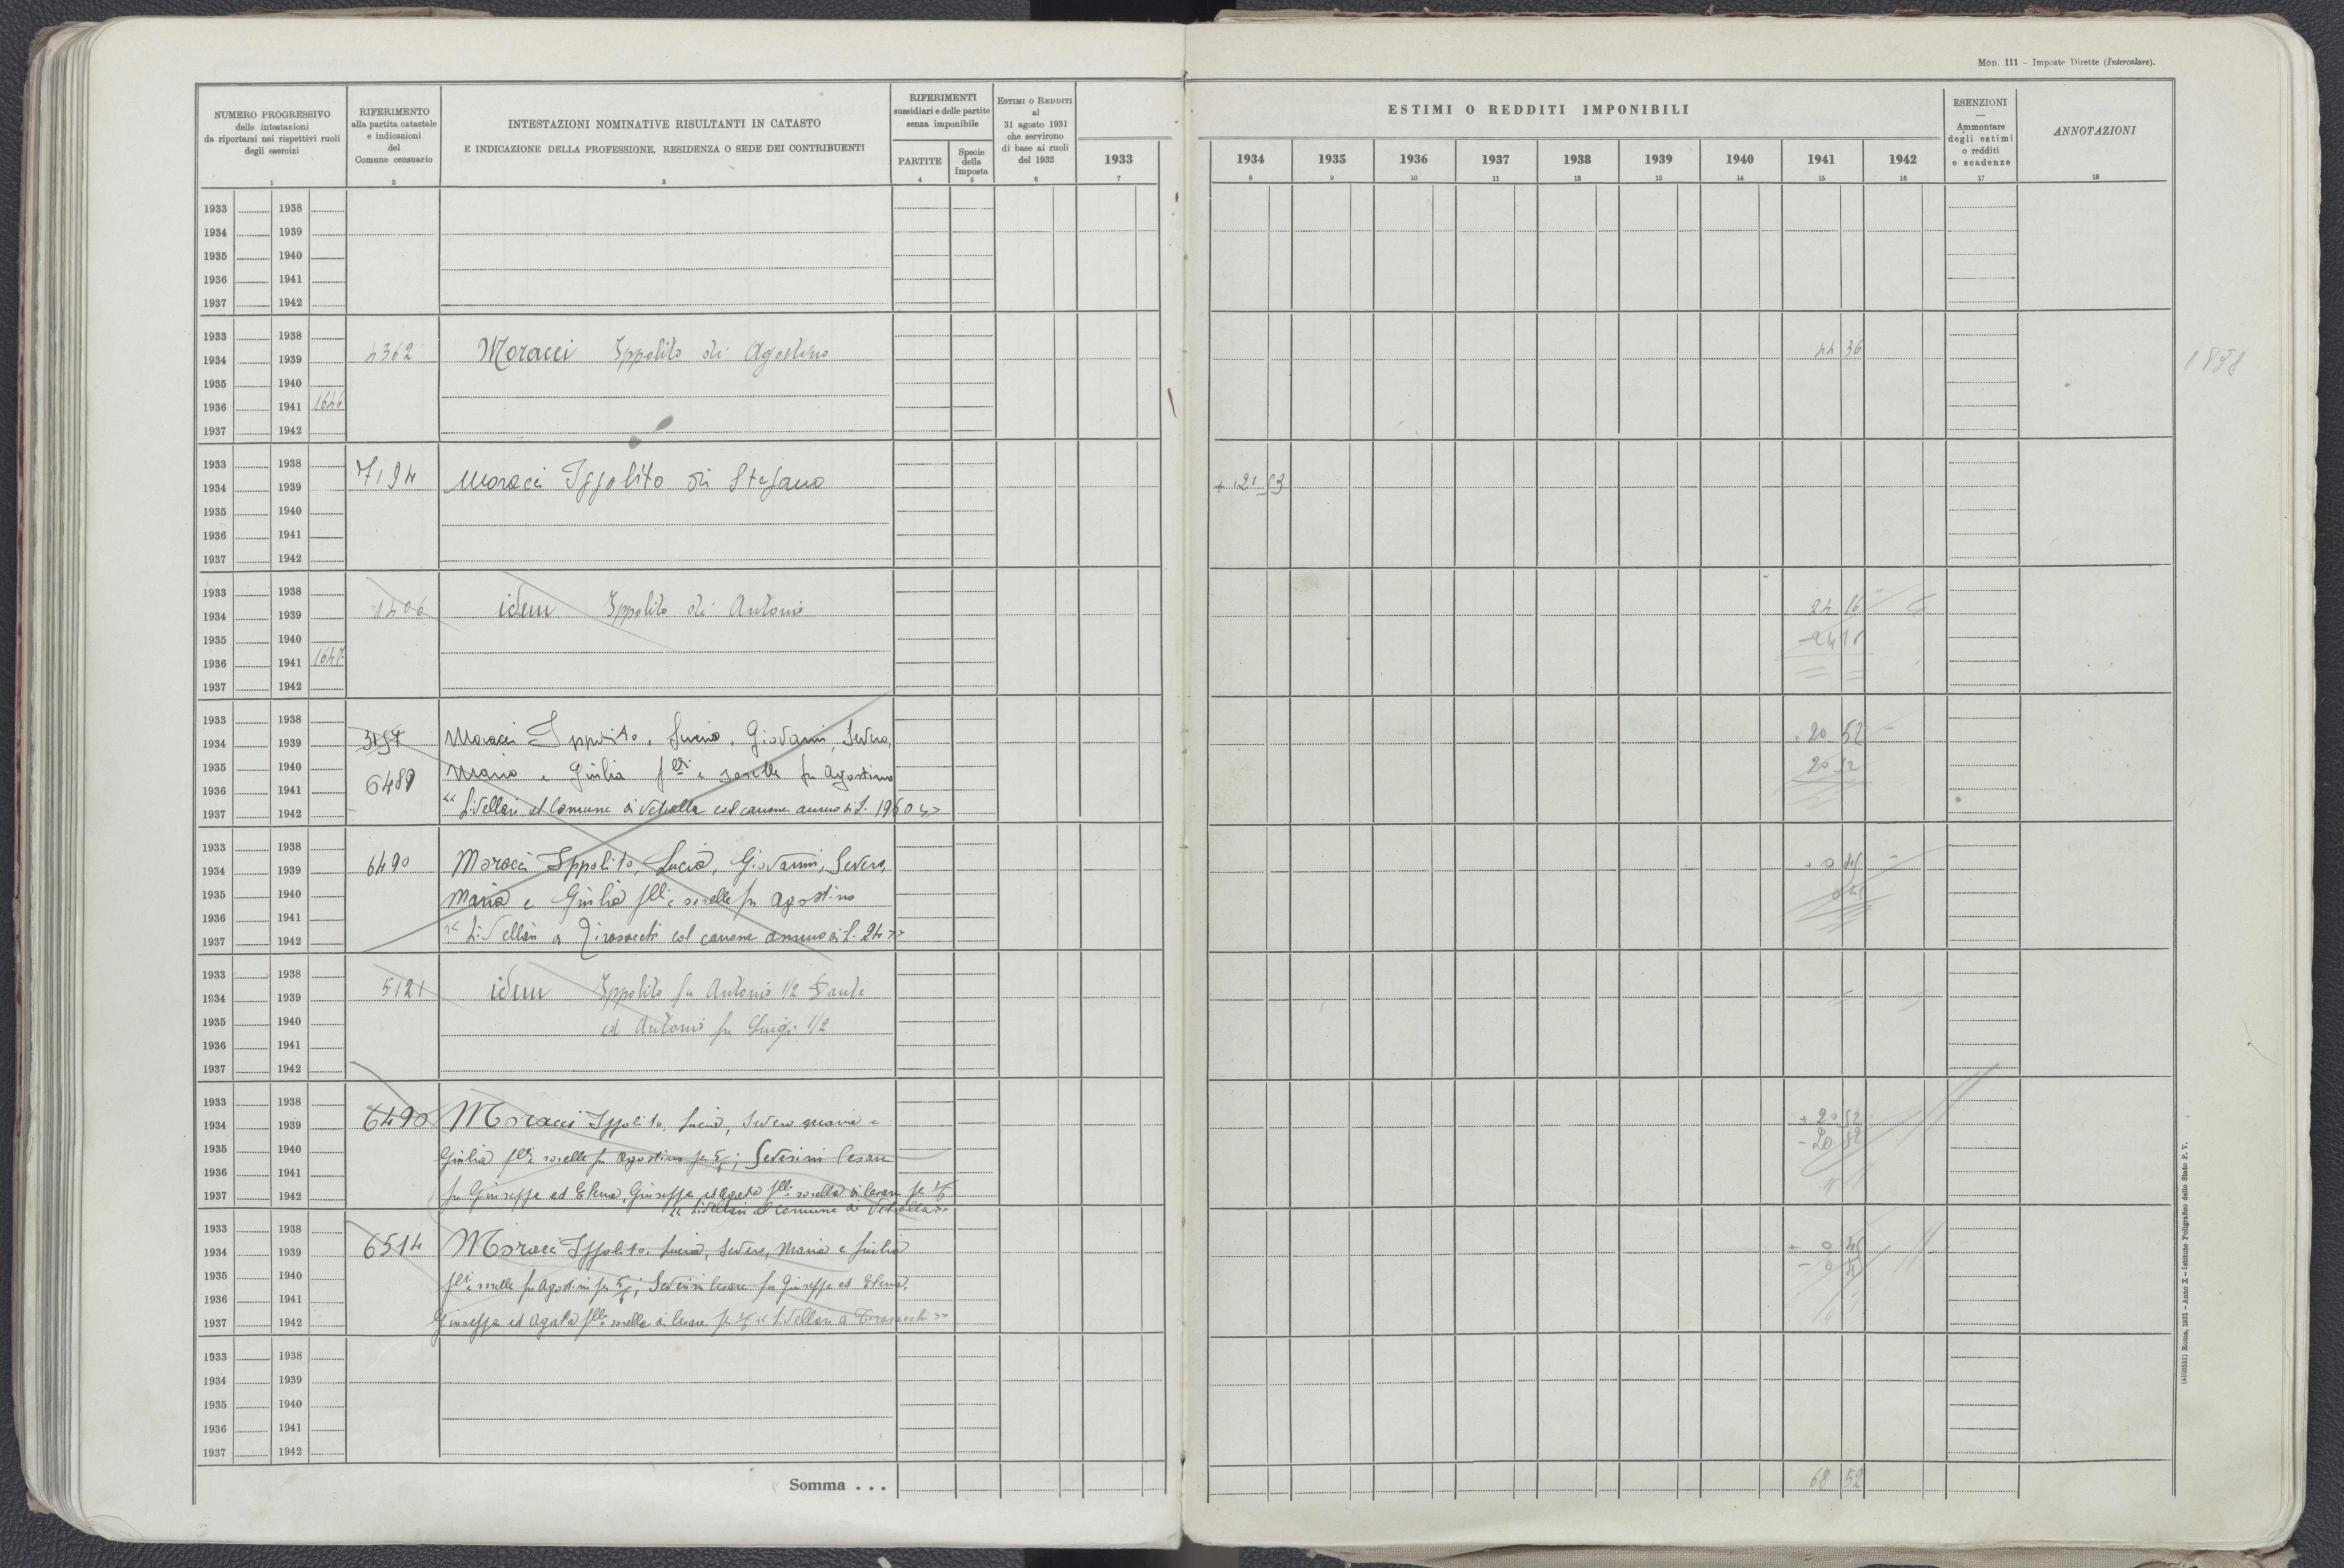 Mod. 111 - Imposte Dirette (Intercalare).
NUMERO PROGRESSIVO
delle intestazioni
da riportarsi nei rispettivi ruoli
degli esercizi
1
RIFERIMENTO
alla partita catastale
e indicazioni
del
Comune censuario
2
INTESTAZIONI NOMINATIVE RISULTANTI IN CATASTO
E INDICAZIONE DELLA PROFESSIONE, RESIDENZA O SEDE DEI CONTRIBUENTI
3
RIFERIMENTI
sussidiari e delle partite
senza imponibile
PARTITE
4
Specie
della
Imposta
5
ESTIMI O REDDITI
al
31 agosto 1931
che servirono
di base ai ruoli
del 1932
6
ESTIMI O REDDITI IMPONIBILI
1933 1934 1935 1936 1937 1938 1939 1940 1941 1942
7 8 9 10 11 12 13 14 15 16
ESENZIONI
—
Ammontare
degli estimi
o redditi
e scadenze
17
ANNOTAZIONI
18
1933 1938
1934 1939
1935 1940
1936 1941
1937 1942
1933 1938
1934 1939 4362 Moracci Ippolito di Agostino 44 36
1935 1940
1936 1941 1646
1937 1942
1933 1938
1934 1939 7194 Moracci Ippolito di Stefano + 21 53
1935 1940
1936 1941
1937 1942
1933 1938
1934 1939 1406 idem Ippolito di Antonio 24 16
1935 1940 - 24 16
1936 1941 1647
1937 1942
1933 1938
1934 1939 3157 Moracci Ippolito, Lucia, Giovanni, Severo, 20 52
1935 1940 Maria e Giulia f.lli e sorelle fu Agostino 20 52
1936 1941 6489
1937 1942 "Livellari al Comune di Vetralla col canone annuo di L. 19
1933 1938
1934 1939 6490 Moracci Ippolito, Lucia, Giovanni, Severo, + 0 45
1935 1940 Maria e Giulia f.lli e sorelle fu Agostino 0 45
1936 1941
1937 1942 "Livellari a col canone annuo di L. 24"
1933 1938
1934 1939 5121 idem Ippolito fu Antonio 1/2 Sante
1935 1940 ed Antonio fu Luigi 1/2
1936 1941
1937 1942
1933 1938
1934 1939 6490 Moracci Ippolito, Lucia, Severo Maria e + 20 52
1935 1940 Giulia f.lli e sorelle fu Agostino per 5/6; Severini Cesare - 20 52
1936 1941
1937 1942 fu Giuseppe ed Elena, Giuseppe ed Agata f.lli e sorella di Cesare per 1/6
"Livellari al Comune di Vetralla"
1933 1938
1934 1939 6514 Moracci Ippolito, Lucia, Severo, Maria e Giulia + 0 45
1935 1940 f.lli e sorelle fu Agostino per 5/6; Severini Cesare fu Giuseppe ed Elena, - 0 45
1936 1941
1937 1942 Giuseppe ed Agata f.lli e sorella di Cesare per 1/6 "Livellari a
1933 1938
1934 1939
1935 1940
1936 1941
1937 1942
Somma . . . 68 52
(4100531) Roma, 1931 - Anno X - Istituto Poligrafico dello Stato P. V.